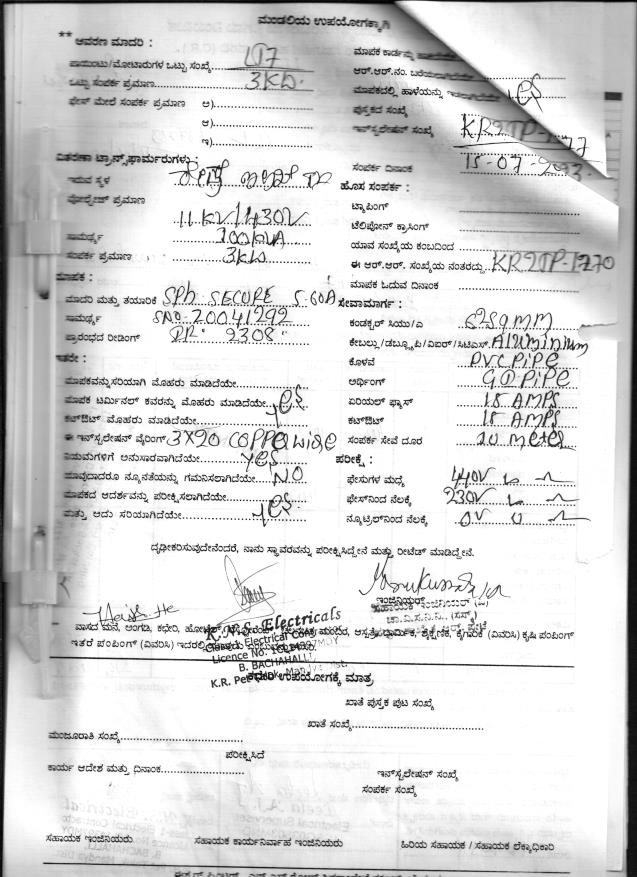 ಮಂಡಲಿಯ ಉಪಯೋಗಕ್ಕಾಗಿ
** ಆವರಣ ಮಾದರಿ :
ಪಾಯಿಂಟು/ಮೋಟಾರುಗಳ ಒಟ್ಟು ಸಂಖ್ಯೆ LT7
ಒಟ್ಟು ಸಂಪರ್ಕ ಪ್ರಮಾಣ 3KW.
ಫೇಸ್ ಮೇಲೆ ಸಂಪರ್ಕ ಪ್ರಮಾಣ ಅ)
ಆ)
ಇ)
ವಿತರಣಾ ಟ್ರಾನ್ಸ್‌ಫಾರ್ಮರುಗಳು :
ಇರುವ ಸ್ಥಳ
ವೋಲ್ಟೇಜ್ ಪ್ರಮಾಣ
11 KV/430V
ಸಾಮರ್ಥ್ಯ 100KVA
ಸಂಪರ್ಕ ಪ್ರಮಾಣ 3KW
ಮಾಪಕ :
ಮಾದರಿ ಮತ್ತು ತಯಾರಿಕೆ SPh SECURE 5-60A
ಸಾಮರ್ಥ್ಯ SNO-20041292
ಪ್ರಾರಂಭದ ರೀಡಿಂಗ್ 2308
ಇತರೇ :
ಮಾಪಕವನ್ನು ಸರಿಯಾಗಿ ಮೊಹರು ಮಾಡಿದೆಯೇ
ಮಾಪಕ ಟರ್ಮಿನಲ್ ಕವರನ್ನು ಮೊಹರು ಮಾಡಿದೆಯೇ yes
ಕಟ್‌ಔಟ್ ಮೊಹರು ಮಾಡಿದೆಯೇ
ಈ ಇನ್‌ಸ್ಟಲೇಷನ್ ವೈರಿಂಗ್ 3X20 COPPER WIRE
ನಿಯಮಗಳಿಗೆ ಅನುಸಾರವಾಗಿದೆಯೇ yes
ಯಾವುದಾದರೂ ನ್ಯೂನತೆಯನ್ನು ಗಮನಿಸಲಾಗಿದೆಯೇ NO
ಮಾಪಕದ ಆದರ್ಶವನ್ನು ಪರೀಕ್ಷಿಸಲಾಗಿದೆಯೇ yes
ಮತ್ತು ಅದು ಸರಿಯಾಗಿದೆಯೇ
ಮಾಪಕ ಕಾರ್ಡನ್ನು
ಆರ್.ಆರ್.ನಂ. ಬರೆಯಲಾಗಿದೆಯೇ
ಮಾಪಕದಲ್ಲಿ ಹಾಳೆಯನ್ನು
ಪುಸ್ತಕದ ಸಂಖ್ಯೆ
ಇನ್‌ಸ್ಟಲೇಷನ್ ಸಂಖ್ಯೆ
ಸಂಪರ್ಕ ದಿನಾಂಕ 15-07-
ಹೊಸ ಸಂಪರ್ಕ :
ಟ್ಯಾಪಿಂಗ್
ಟೆಲಿಫೋನ್ ಕ್ರಾಸಿಂಗ್
ಯಾವ ಸಂಖ್ಯೆಯ ಕಂಬದಿಂದ
ಈ ಆರ್.ಆರ್. ಸಂಖ್ಯೆಯ ನಂತರದ್ದು KR2TP-1270
ಮಾಪಕ ಓದುವ ದಿನಾಂಕ
ಸೇವಾಮಾರ್ಗ :
ಕಂಡಕ್ಟರ್ ಸಿಯು/ಎ 2.5sqmm
ಕೇಬಲ್ಲು/ಡಬ್ಲ್ಯೂಪಿ/ವಿಐಆರ್/ಸಿಟಿಎಸ್ Aluminium
ಕೊಳವೆ PVC PiPe
ಅರ್ಥಿಂಗ್ GI PiPe
ಏರಿಯಲ್ ಫ್ಯೂಸ್ 15 AMPS
ಕಟ್‌ಔಟ್ 15 AMPS
ಸಂಪರ್ಕ ಸೇವೆ ದೂರ 10 meter
ಪರೀಕ್ಷೆ :
ಫೇಸುಗಳ ಮಧ್ಯೆ 440V
ಫೇಸ್‌ನಿಂದ ನೆಲಕ್ಕೆ 230V
ನ್ಯೂಟ್ರಲ್‌ನಿಂದ ನೆಲಕ್ಕೆ 0V
ದೃಢೀಕರಿಸುವುದೇನೆಂದರೆ, ನಾನು ಸ್ಥಾವರವನ್ನು ಪರೀಕ್ಷಿಸಿದ್ದೇನೆ ಮತ್ತು ರೀಟೆಡ್ ಮಾಡಿದ್ದೇನೆ.
ಇಂಜಿನಿಯರ್
ಸಹಾಯಕ ಇಂಜಿನಿಯರ್ (ವಿ)
ಚಾ.ವಿ.ಸ.ನಿ.ನಿ.,
ವಾಸದ ಮನೆ, ಅಂಗಡಿ, ಕಛೇರಿ, ಹೋಟೆಲ್, ಮಂದಿರ, ಆಸ್ಪತ್ರೆ, ಧಾರ್ಮಿಕ, ಶೈಕ್ಷಣಿಕ, ಕೈಗಾರಿಕೆ (ವಿವರಿಸಿ) ಕೃಷಿ ಪಂಪಿಂಗ್
ಇತರೆ ಪಂಪಿಂಗ್ (ವಿವರಿಸಿ)
Electricals
Electrical Cont
Licence No.
B. BACHAHALLI
K.R. Pet
ಕಛೇರಿ ಉಪಯೋಗಕ್ಕೆ ಮಾತ್ರ
ಖಾತೆ ಪುಸ್ತಕ ಪುಟ ಸಂಖ್ಯೆ
ಖಾತೆ ಸಂಖ್ಯೆ
ಮಂಜೂರಾತಿ ಸಂಖ್ಯೆ
ಪರೀಕ್ಷಿಸಿದೆ
ಕಾರ್ಯ ಆದೇಶ ಮತ್ತು ದಿನಾಂಕ
ಇನ್‌ಸ್ಟಲೇಷನ್ ಸಂಖ್ಯೆ
ಸಂಪರ್ಕ ಸಂಖ್ಯೆ
ಸಹಾಯಕ ಇಂಜಿನಿಯರು
ಸಹಾಯಕ ಕಾರ್ಯನಿರ್ವಾಹ ಇಂಜಿನಿಯರು
ಹಿರಿಯ ಸಹಾಯಕ / ಸಹಾಯಕ ಲೆಕ್ಕಾಧಿಕಾರಿ